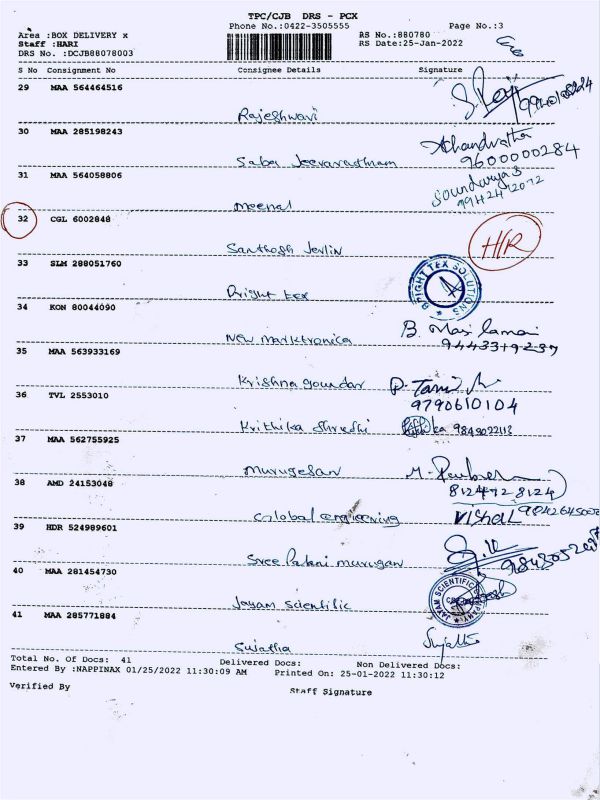 TPC/CJB DRS - PCX
Phone No.:0422-3505555 Page No.:3
Area :BOX DELIVERY x RS No.:880780
Staff :HARI RS Date:25-Jan-2022
DRS No. :DCJB88078003
S No Consignment No Consignee Details Signature
29 MAA 564464516
Rajeshwari
30 MAA 285198243
Chandralatha
Saba Jeevarathnam 9600000284
31 MAA 564058806
Soundarya S
Meenal
32 CGL 6002848
H/R
Santhosh Jerlin
33 SLM 288051760
BRIGHT TEX SOLUTIONS
Bright tex
34 KON 80044090
New Marktronics
35 MAA 563933169
Krishna goundar
36 TVL 2553010
9790610104
Krithika Shredhi
37 MAA 562755925
Murugesan
38 AMD 24153048
8124728124
Global engineering Vishal
39 HDR 524989601
Sree Palani murugan
40 MAA 281454730
JAYAM SCIENTIFIC COMPANY
Jayam scientific
41 MAA 285771884
Sujatha
Total No. Of Docs: 41 Delivered Docs: Non Delivered Docs:
Entered By :NAPPINAX 01/25/2022 11:30:09 AM Printed On: 25-01-2022 11:30:12
Verified By Staff Signature